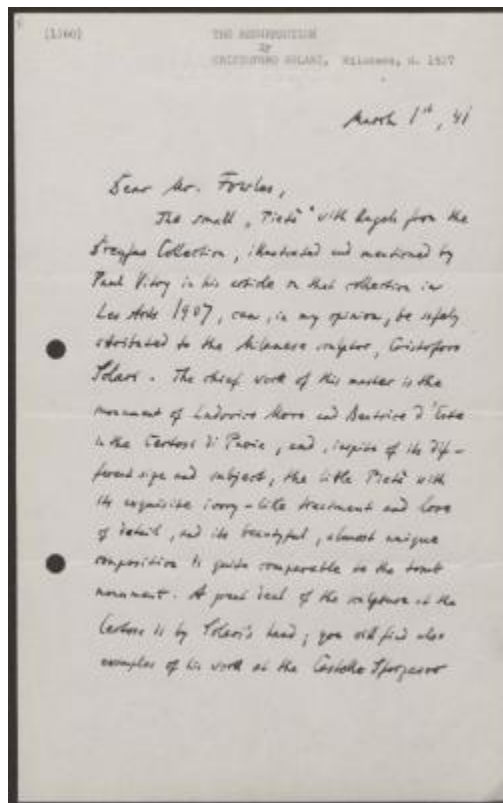 (1560)
THE RESURRECTION
By
CRISTOFORO SOLARI, Milanese, d. 1527
March 1st, 41
Dear Mr. Fowles,
The small "Pietà" with Angels from the
Dreyfus Collection, illustrated and mentioned by
Paul Vitry in his article on that collection in
Les Arts 1907, can, in my opinion, be safely
attributed to the Milanese sculptor, Cristoforo
Solari. The chief work of this master is the
monument of Ludovico Moro and Beatrice d'Este
in the Certosa di Pavia, and, inspite of its dif-
ferent size and subject, the little Pietà with
its exquisite ivory-like treatment and love
of detail, and its beautyful, almost unique
composition is quite comparable to the tomb
monument. A great deal of the sculpture at the
Certosa is by Solari's hand; you will find also
examples of his work at the Castello Sforzesco